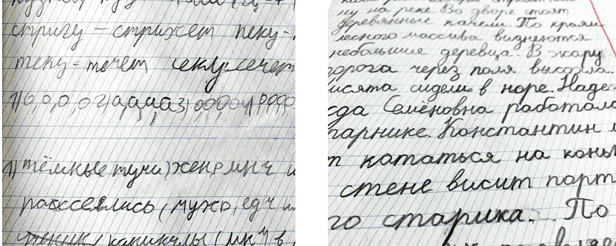 стригу – стрижет пеку-
теку-течет секу-сечет
1) о, о, о, о 2) а, а, а, а 3)
1) тёмные тучи) жен р мн ч и
расселись (муж р, ед ч
каникулы (мн ч в
ну на реке. Во дворе стоят
деревянные качели. По краям
лесного массива виднеются
небольшие деревца. В жару
дорога через поля высохла.
сидели в норе. Наде-
да Семёновна работала
парнике. Константин
т кататься на конь
стене висит порт
го старика. По